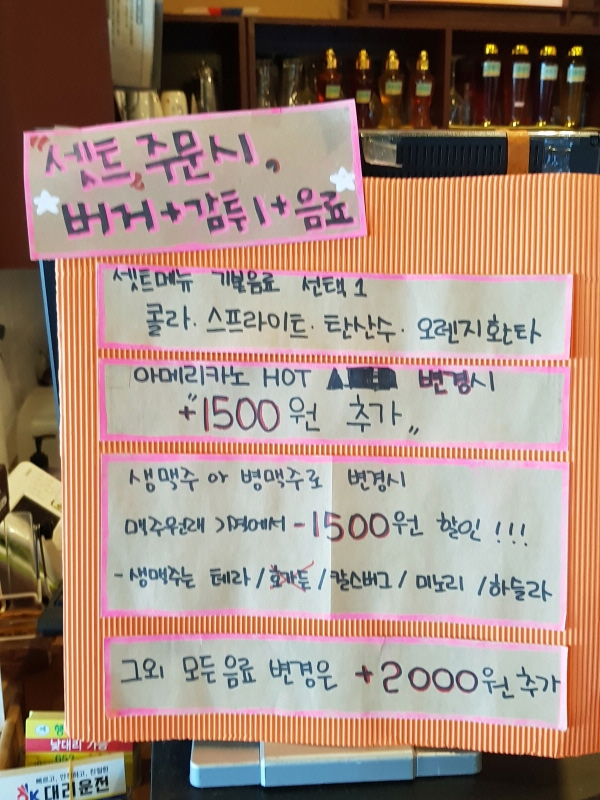 "셋트" 주문시,
버거+감튀1+음료
셋트메뉴 기본음료 선택1
콜라·스프라이트·탄산수·오렌지환타
아메리카노 HOT 변경시
"+1500원 추가"
생맥주 or 병맥주로 변경시
맥주원래 가격에서 -1500원 할인!!!
-생맥주는 테라/호가든/칼스버그/미노리/하늘라
그외 모든음료 변경은 +2000원 추가
낮대리 가능
빠르고, 안전하고, 친절한
OK대리운전